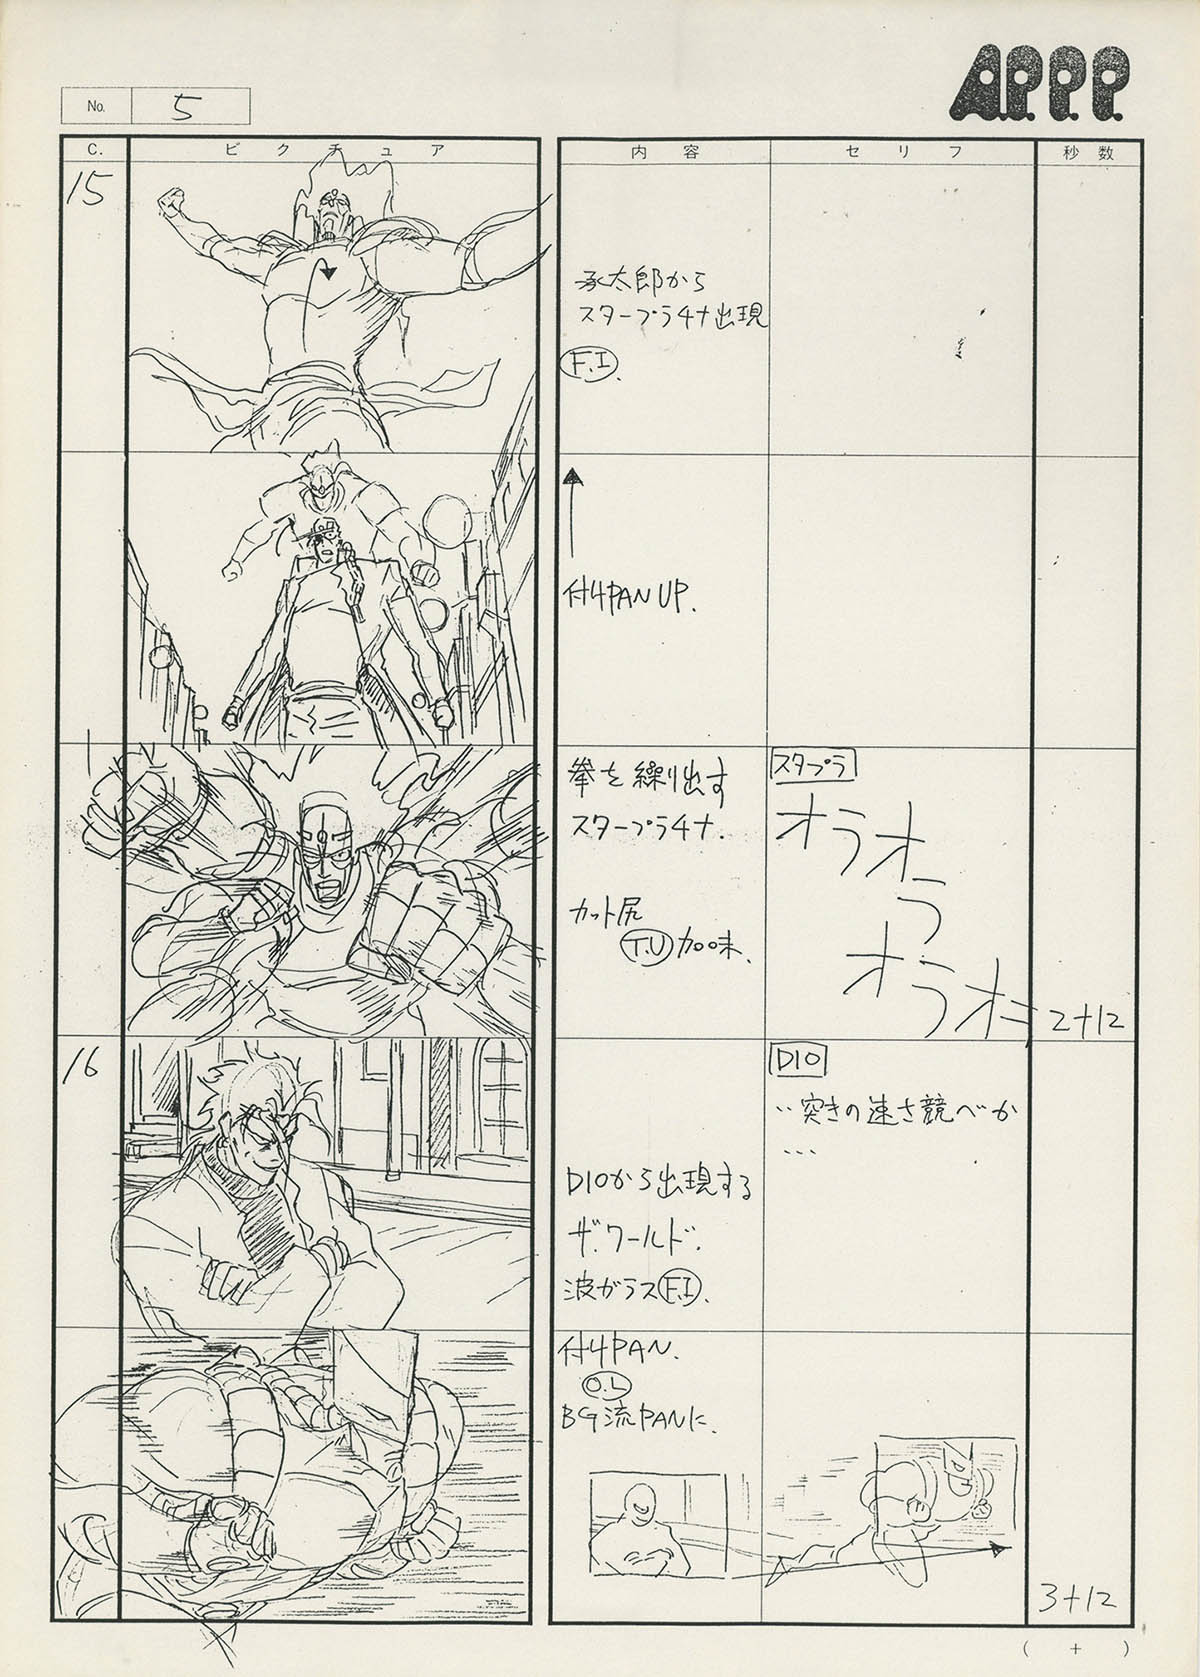 A.P.P.P.
No. 5
C. ピクチュア 内容 セリフ 秒数
15
承太郎から
スタープラチナ出現
F.I.
付けPAN UP.
拳を繰り出す
スタープラチナ.
カット尻
T.U加味.
スタプラ
オラオ
ラ
オラオラ
2+12
16
DIOから出現する
ザ・ワールド.
波ガラスF.I.
DIO
‥突きの速さ競べか
…
付けPAN.
O.L
BG流PANに.
3+12
( + )